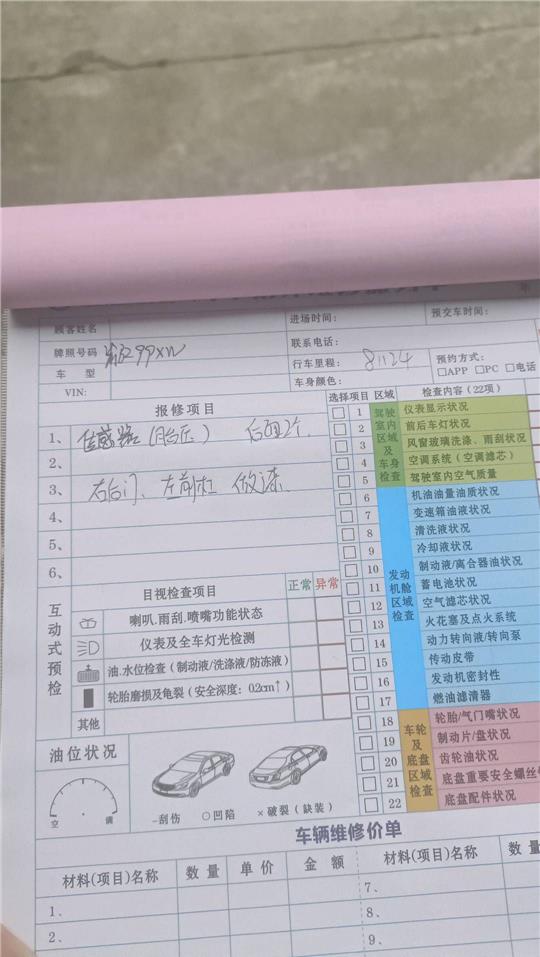 年
顾客姓名 进场时间： 预交车时间：
牌照号码 99XW 联系电话：
车 型 行车里程： 81124 预约方式：
□APP □PC □电话
VIN: 车身颜色：
报修项目 选择项目 区域 检查内容（22项）
1、传感器（胎压） 后面2个.
2、
3、右后门、左前杠 做漆
4、
5、
6、
1 仪表显示状况
2 前后车灯状况
3 风窗玻璃洗涤、雨刮状况
4 空调系统（空调滤芯）
5 驾驶室内空气质量
驾驶室内区域及车身检查
6 机油油量油质状况
7 变速箱油液状况
8 清洗液状况
9 冷却液状况
10 制动液/离合器油状况
11 蓄电池状况
12 空气滤芯状况
13 火花塞及点火系统
14 动力转向液/转向泵
15 传动皮带
16 发动机密封性
17 燃油滤清器
发动机舱区域检查
18 轮胎/气门嘴状况
19 制动片/盘状况
20 齿轮油状况
21 底盘重要安全螺丝
22 底盘配件状况
车轮及底盘区域检查
互动式预检
目视检查项目 正常 异常
喇叭.雨刮.喷嘴功能状态
仪表及全车灯光检测
油.水位检查（制动液/洗涤液/防冻液）
轮胎磨损及龟裂（安全深度：0.2cm↑）
其他
油位状况
空 满
-刮伤 ○凹陷 ×破裂（缺装）
车辆维修价单
材料(项目)名称 数 量 单 价 金 额 材料(项目)名称 数 量
1、 7、
2、 8、
9、